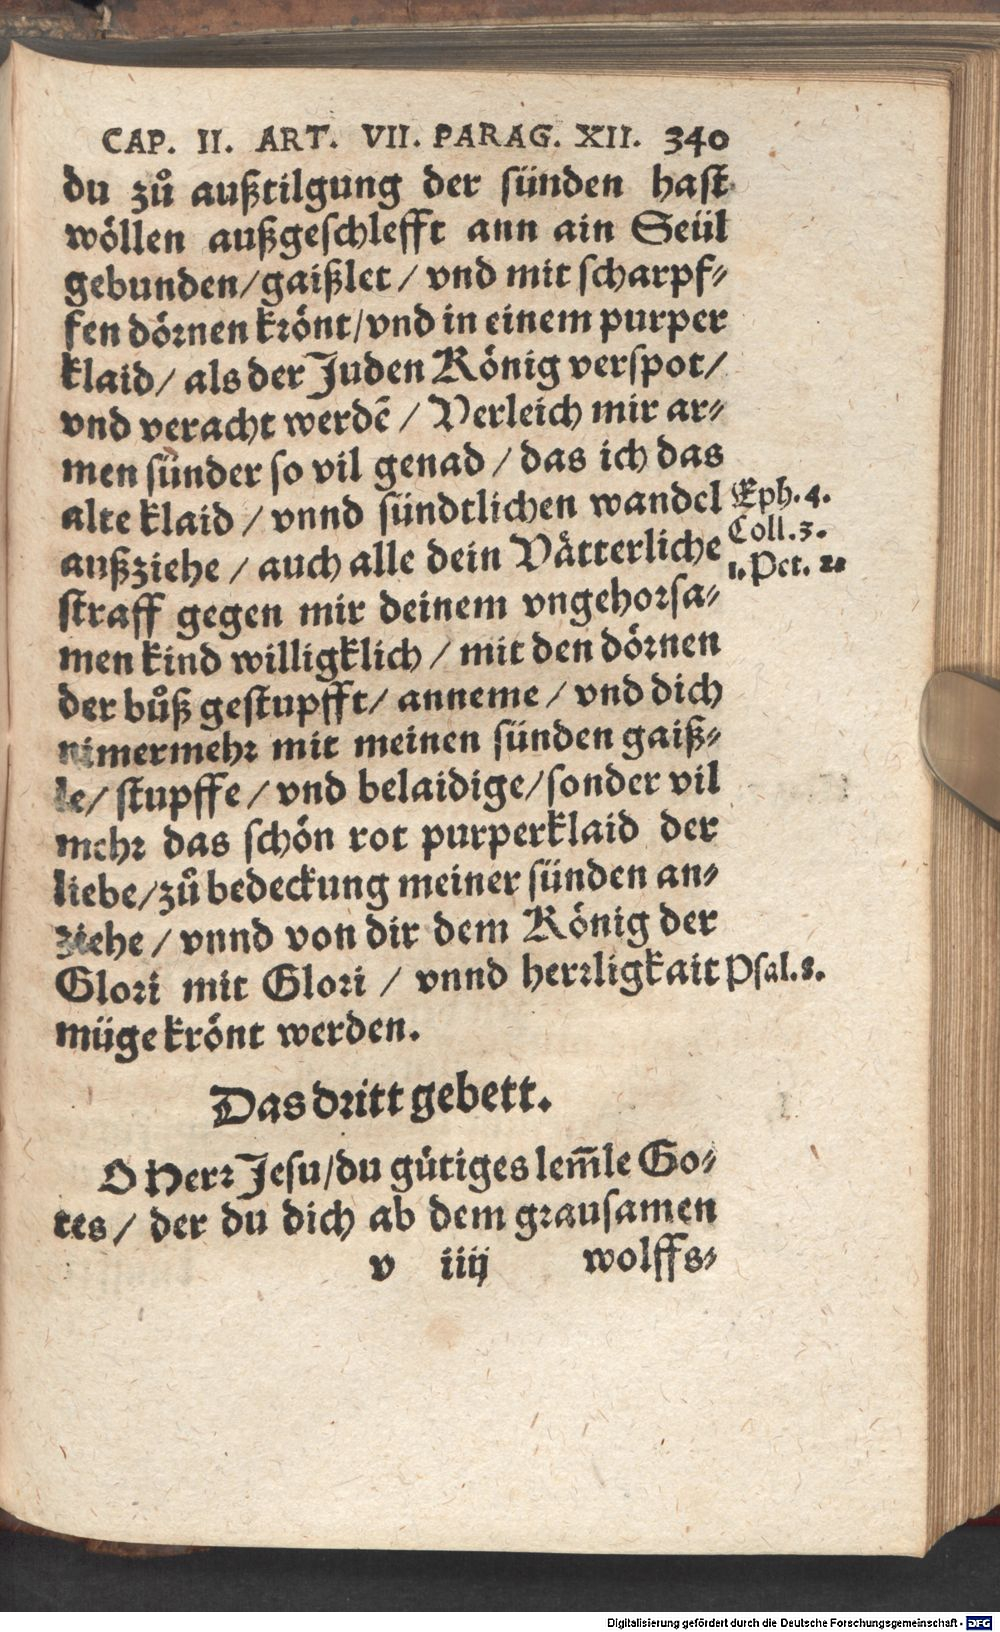 CAP. II. ART. VII. PARAG. XII. 340
du zů außtilgung der sünden hast
wöllen außgeschlefft ann ain Seül
gebunden/gaißlet / vnd mit scharpf⸗
fen dörnen krönt/vnd in einem purper
klaid/ als der Juden König verspot/
vnd veracht werdē / Verleich mir ar⸗
men sünder so vil genad / das ich das
alte klaid / vnnd sündtlichen wandel
Eph. 4.
Coll. 3.
1. Pet. 2.
außziehe / auch alle dein Vätterliche
straff gegen mir deinem vngehorsa⸗
men kind willigklich / mit den dörnen
der bůß gestupfft/ anneme / vnd dich
nimermehr mit meinen sünden gaiß⸗
le/ stupffe / vnd belaidige/sonder vil
mehr das schön rot purperklaid der
liebe/zů bedeckung meiner sünden an⸗
ziehe / vnnd von dir dem König der
Glori mit Glori / vnnd herrligkait
Psal. 8.
müge krönt werden.
Das dritt gebett.
O Herr Jesu/du gütiges lem̄le Go⸗
tes/ der du dich ab dem grausamen
v iiij wolffs⸗
Digitalisierung gefördert durch die Deutsche Forschungsgemeinschaft - DFG